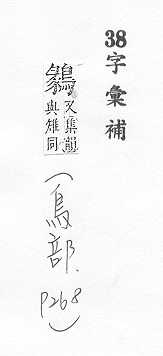 38字彙補
又集韻
與雉同
(鳥部.P268)